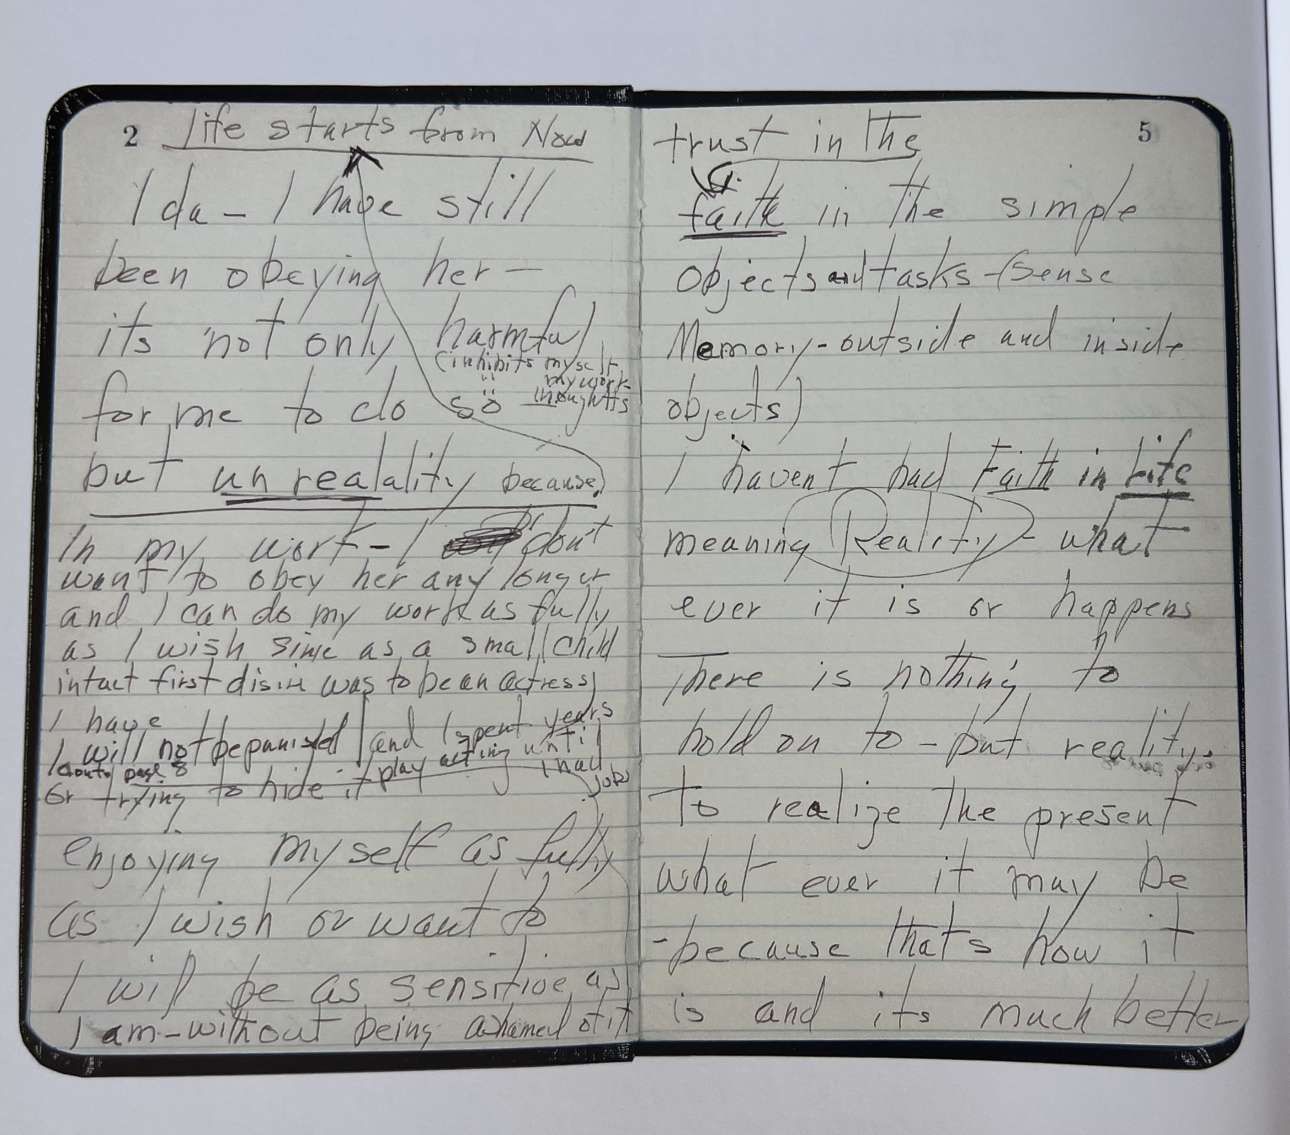 2
life starts from Now
Ida - I have still
been obeying her -
its not only harmful
(inhibits myself
" my work-
" thoughts
for me to do so
but unrealality because
In my work - I don't
want to obey her any longer
and I can do my work as fully
as I wish since as a small child
intact first disire was to be an actress
I have
I will not be punished and I spent years
play acting until
I had
jobs
or trying to hide it
enjoying myself as fully
as I wish or want to
I will be as sensitive as
I am - without being ashamed of it
5
trust in the
faith in the simple
objects and tasks - (Sense
Memory - outside and inside
objects)
I havent had Faith in Life
meaning Reality - what
ever it is or happens
There is nothing to
hold on to - but reality.
to realize the present
what ever it may be
- because thats how it
is and its much better